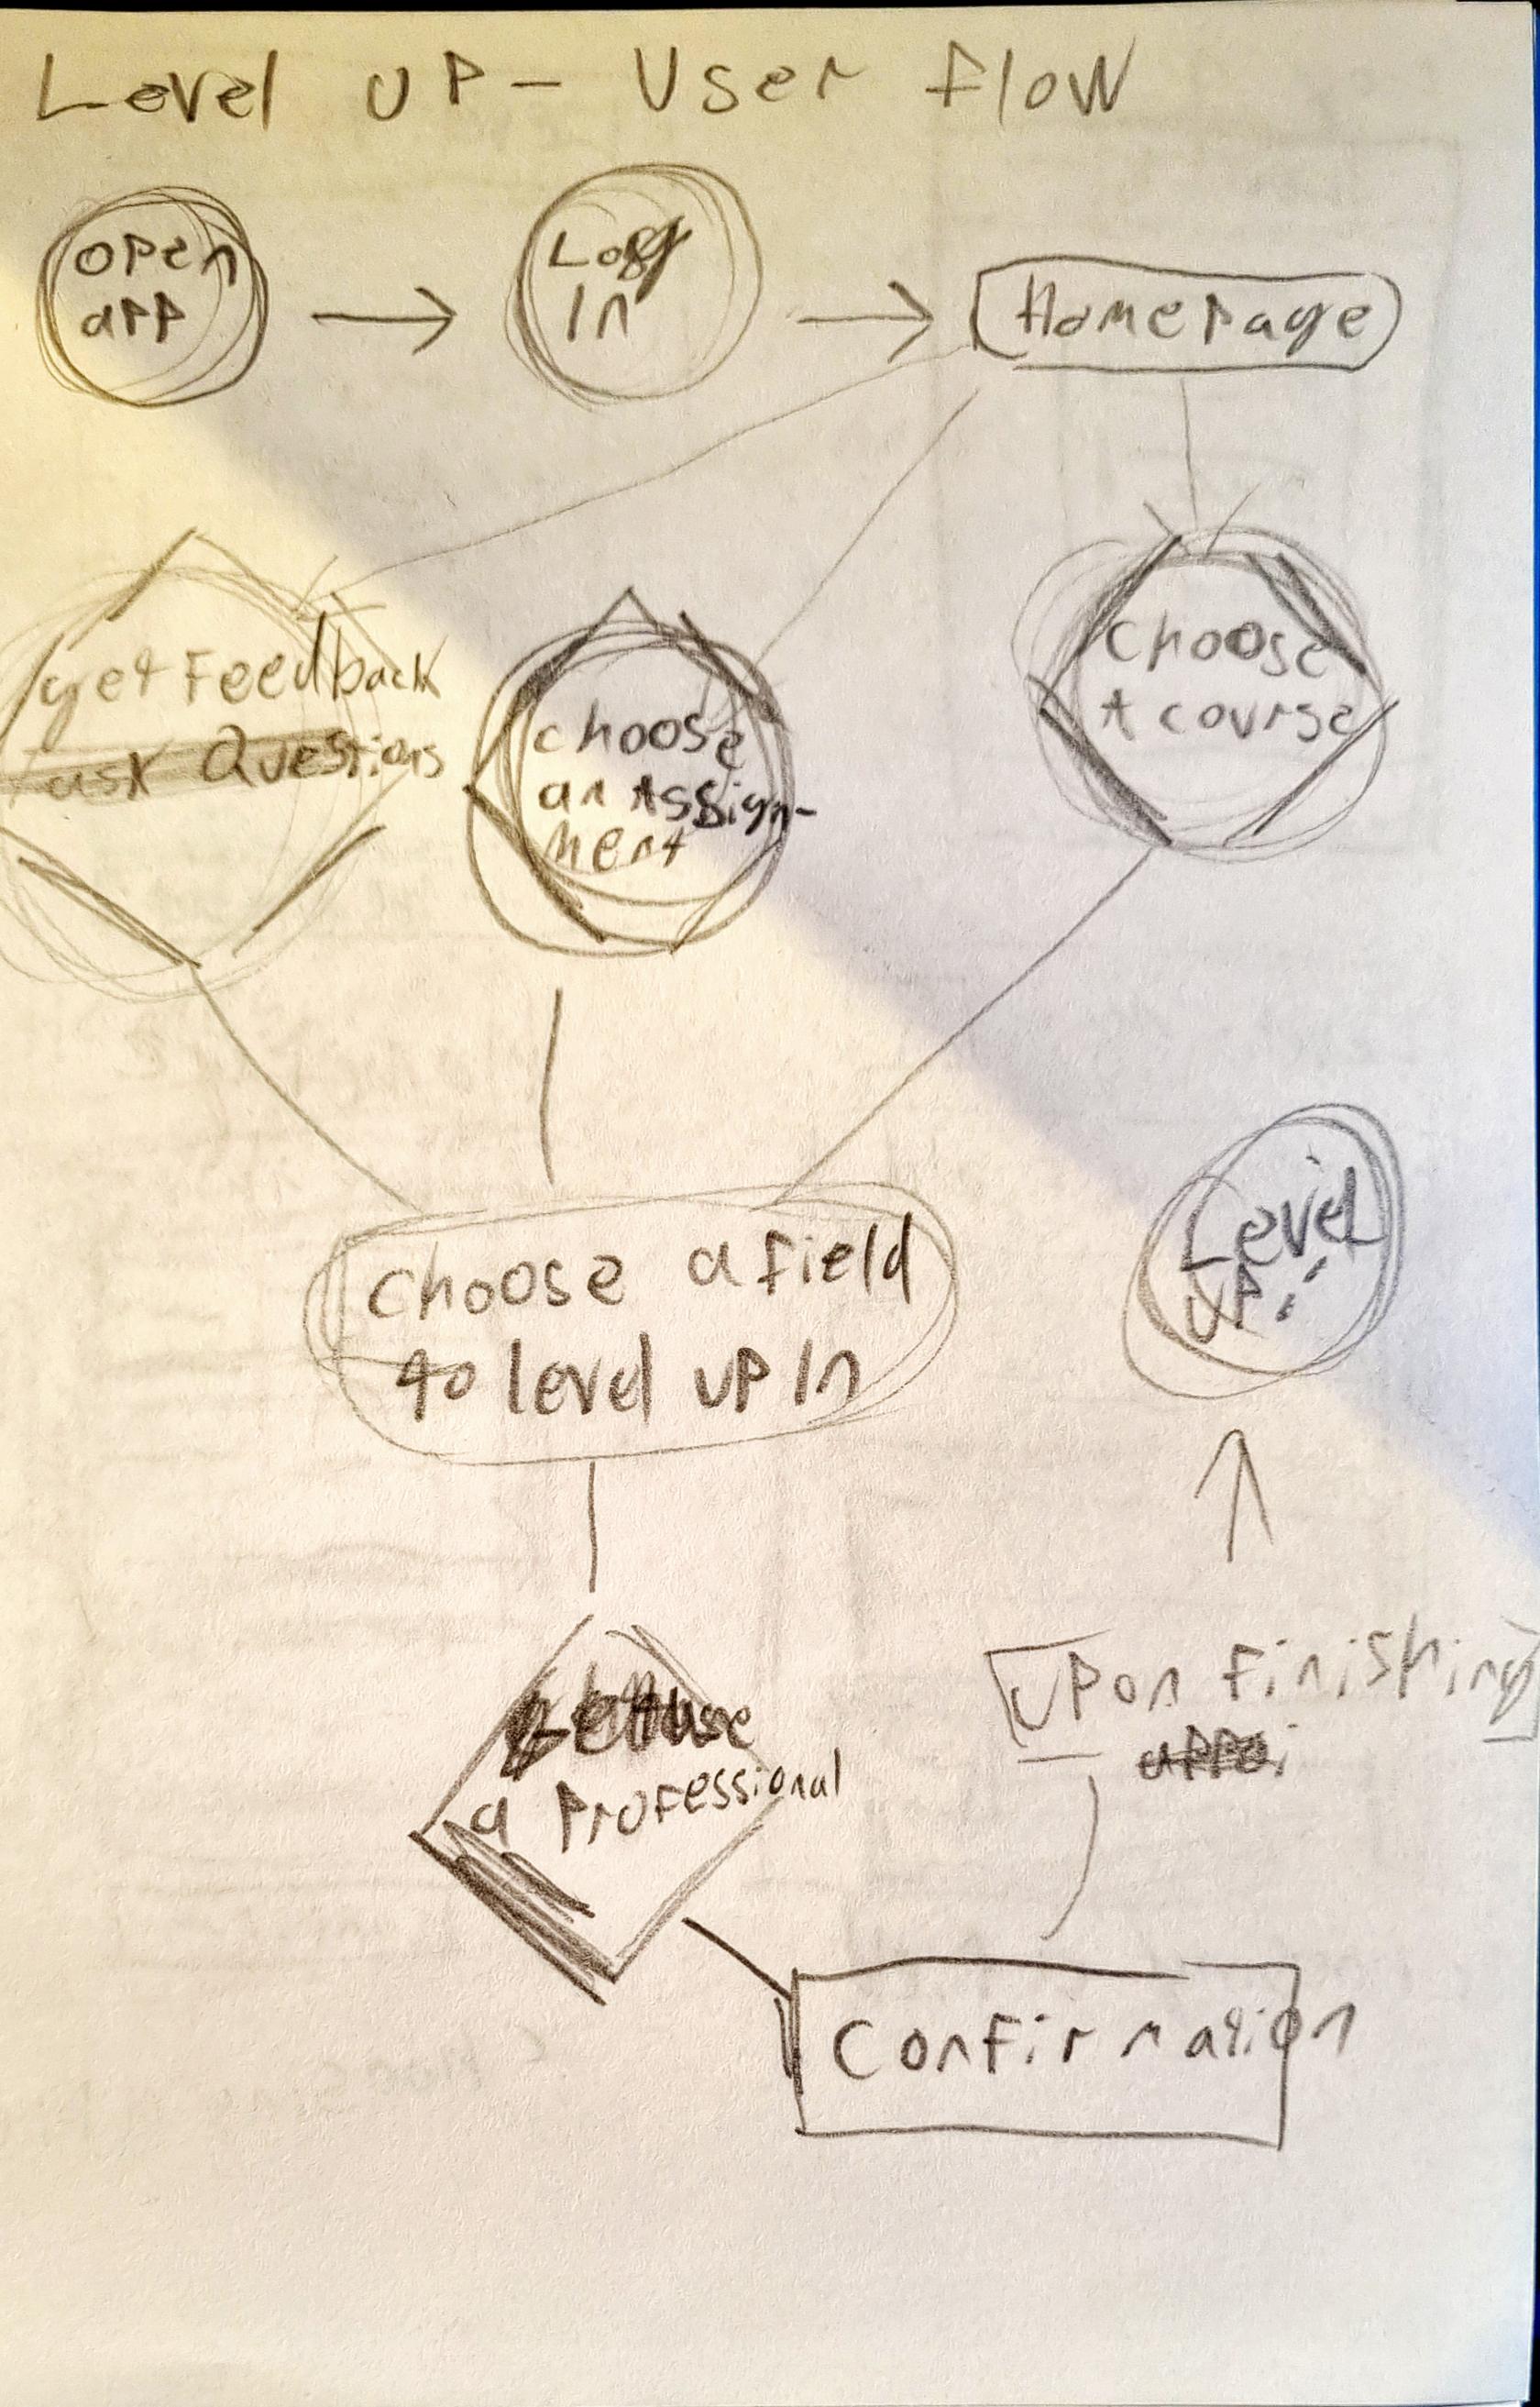 Level UP - User flow
open
app
Log
In
HomePage
get Feedback
ask Questions
choose
an Assign-
ment
choose
A course
choose a field
to level up In
Level
UP!
a Professional
UPon Finishing
Confirmation